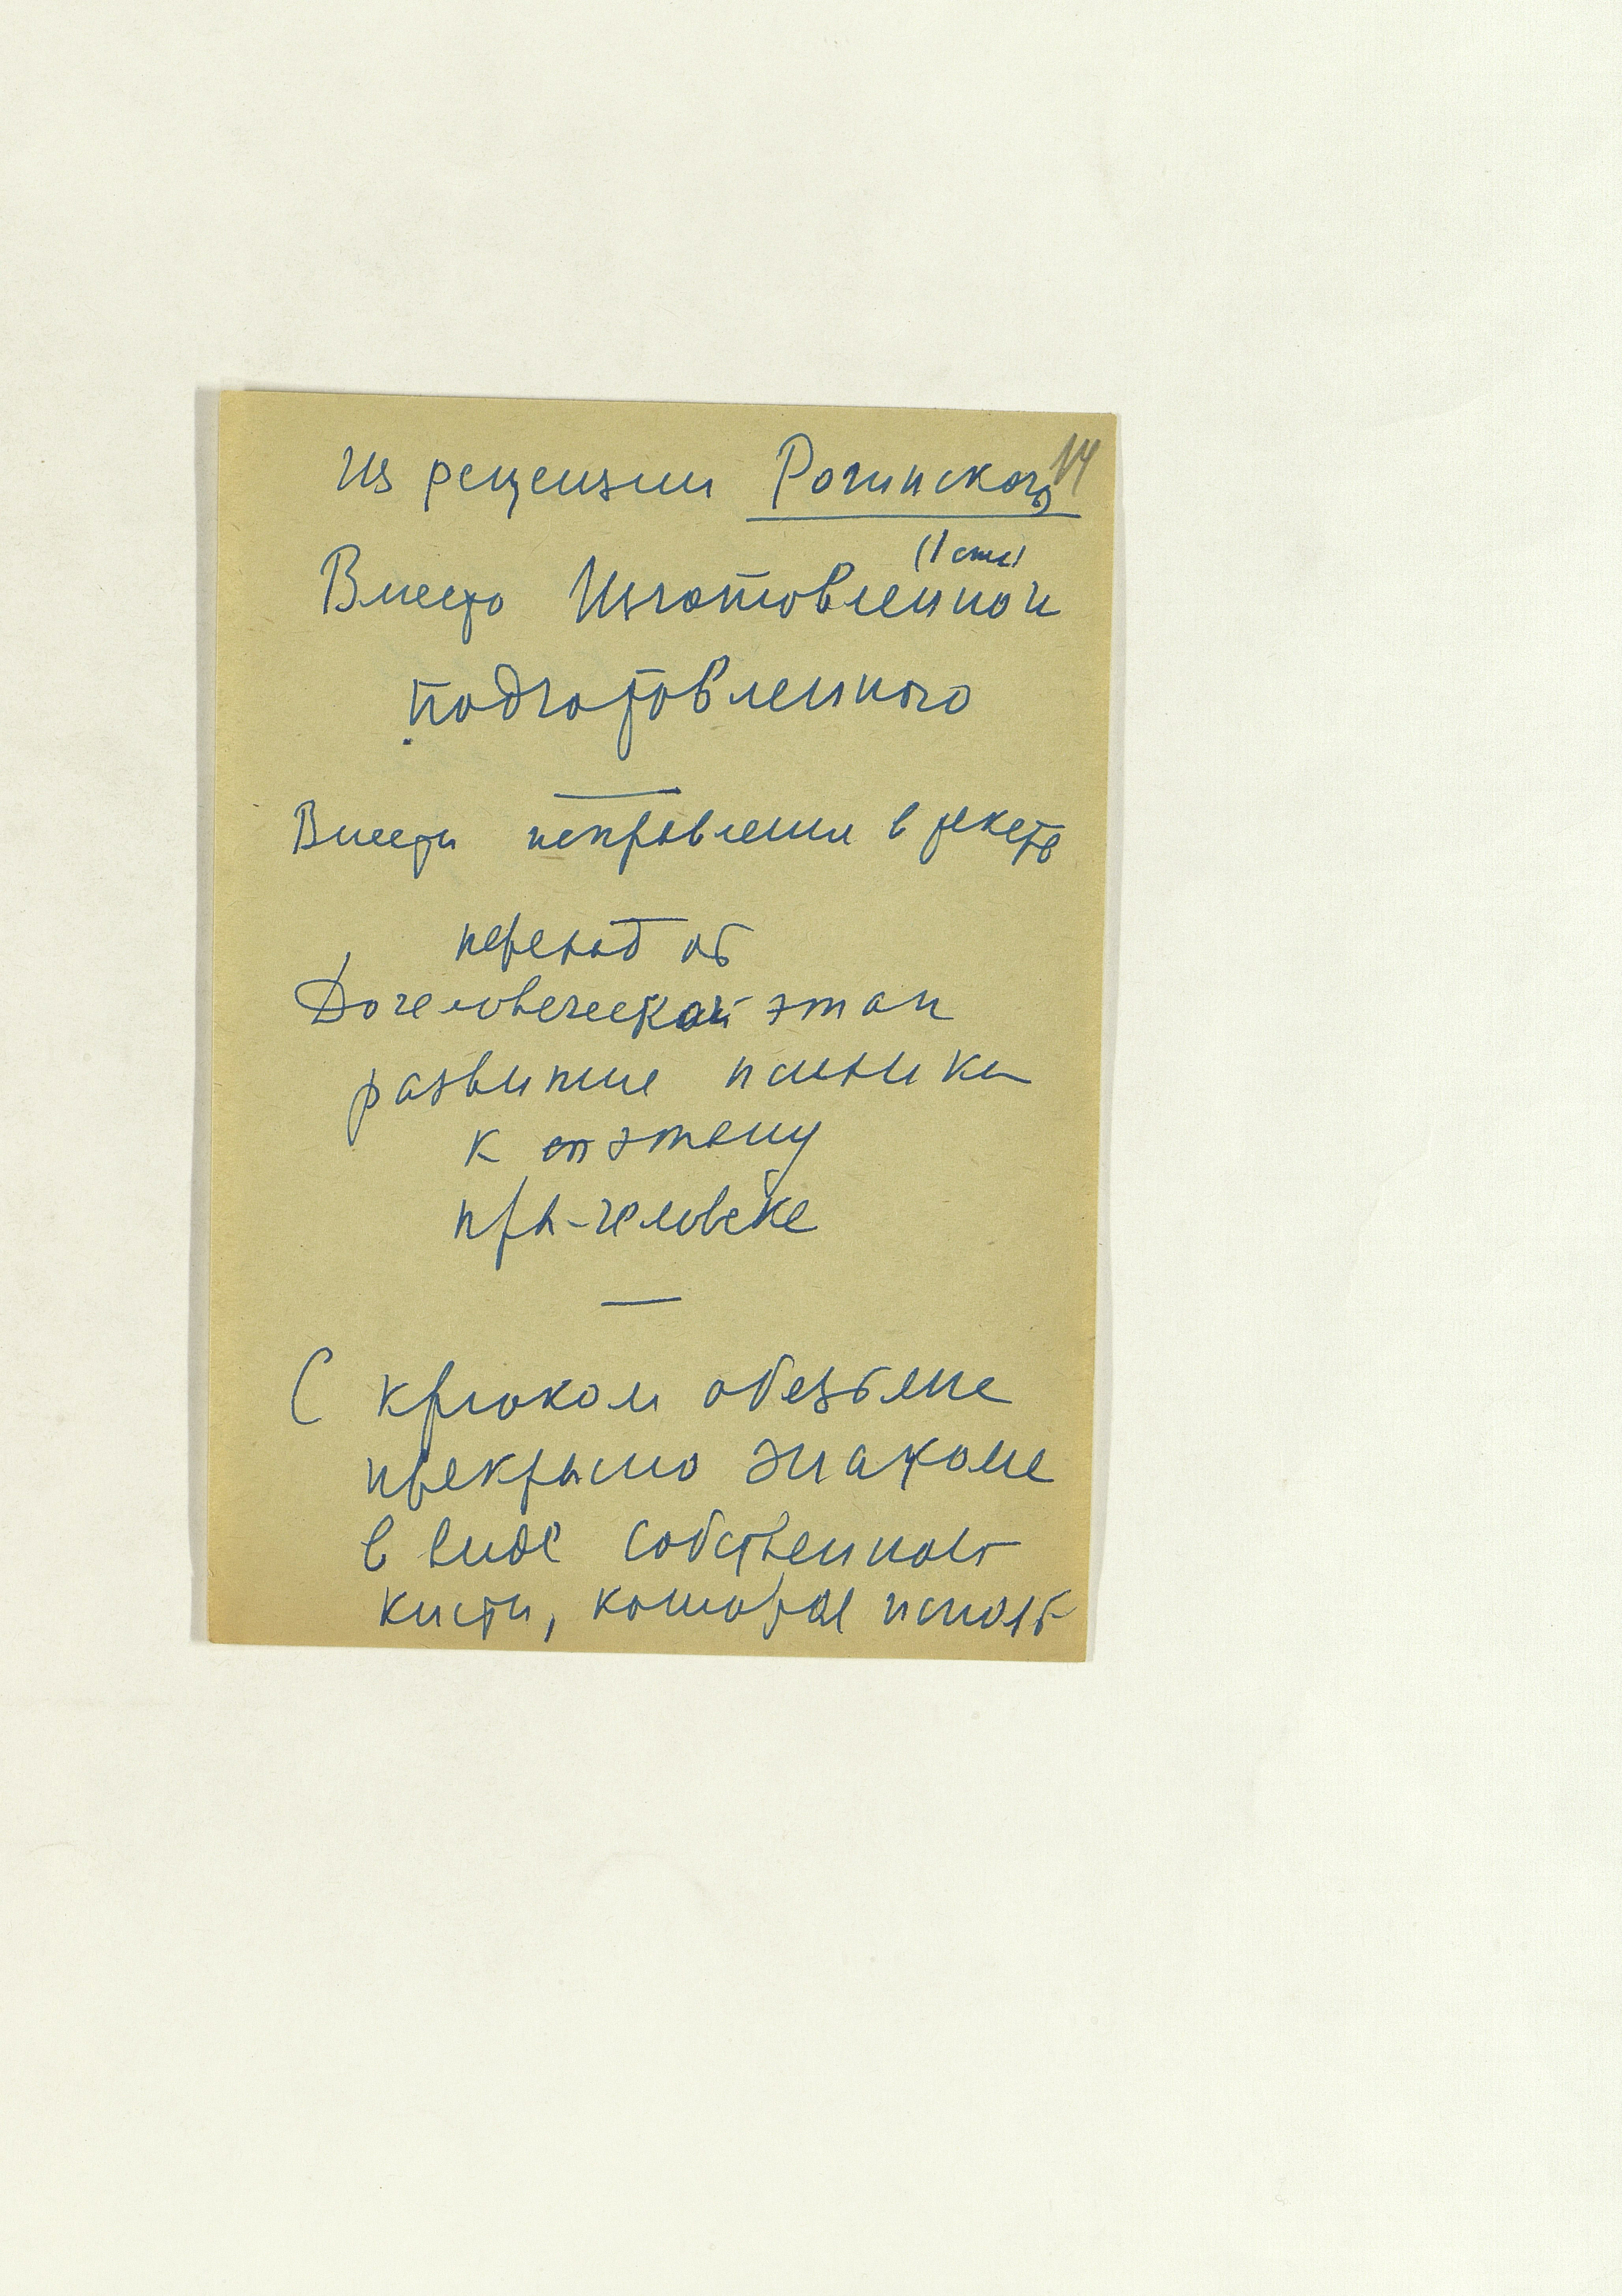 Из рецензии Рогинского 14
(1 стр)
Вместо Изготовленной
подготовленного
Внести исправления в текст
переход от
Дочеловеческой этап
развития психики
к этапу
пра-человека
С крюком обезьяна
прекрасно знакома
в виде собственной
кисти, которая использ